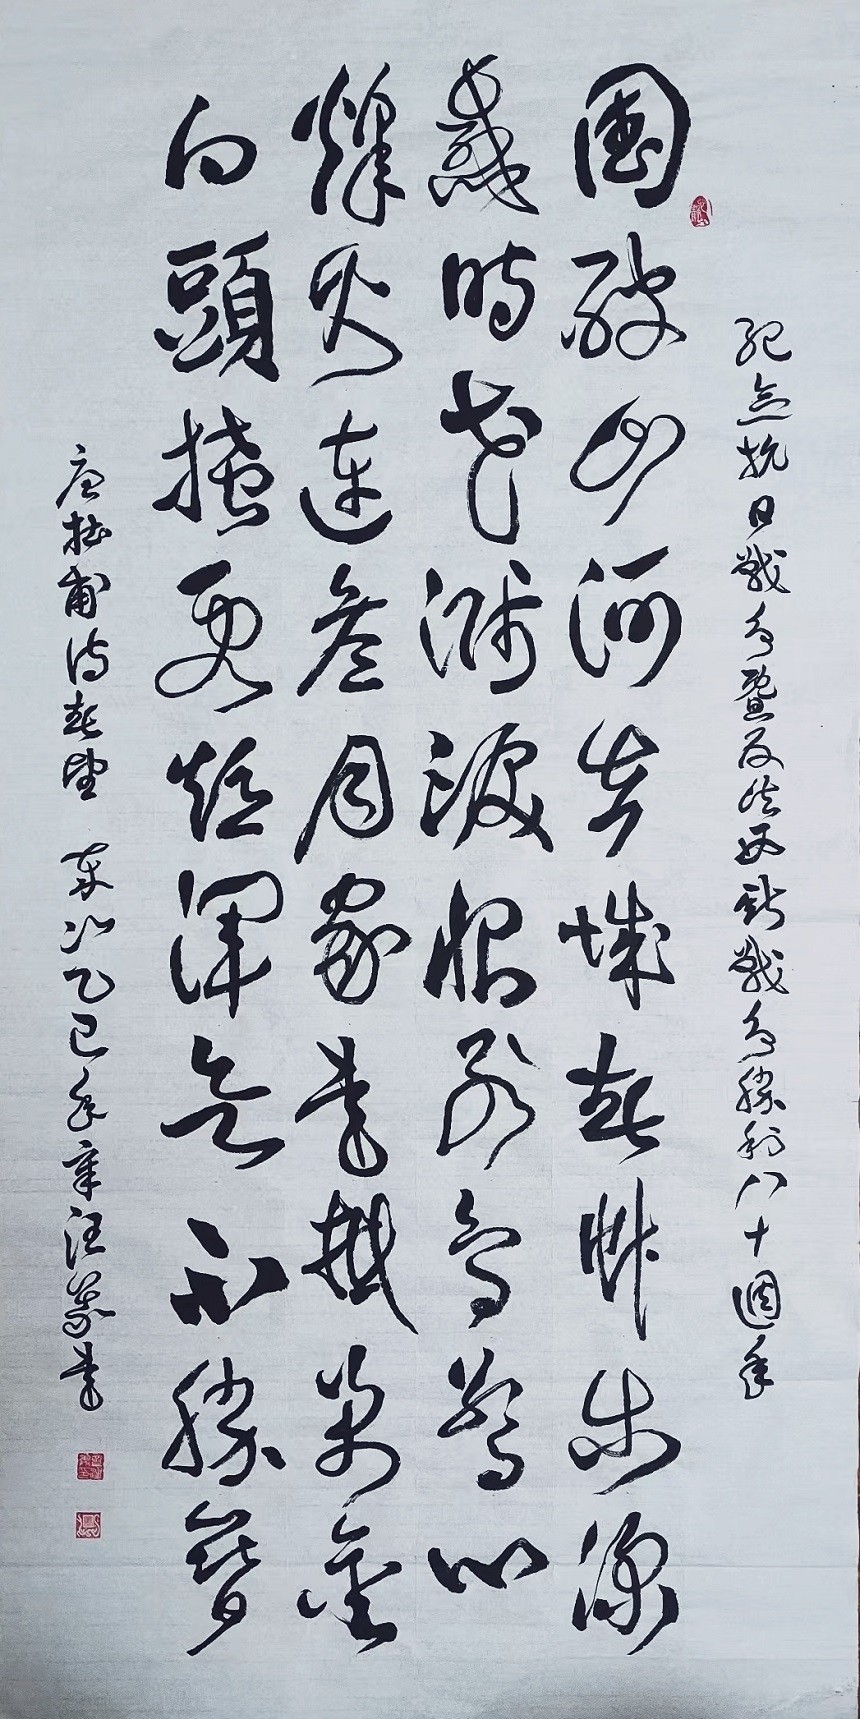 紀念抗日戰爭暨反法西斯戰爭勝利八十週年
國破山河在城春草木深
感時花濺淚恨別鳥驚心
烽火連叁月家書抵萬金
白頭搔更短渾欲不勝簪
唐杜甫詩春望 乙巳年章汪書